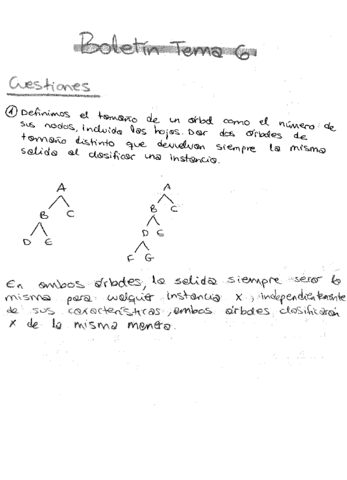 Boletín Tema 6
Cuestiones
① Definimos el tamaño de un árbol como el número de
sus nodos, incluida las hojas. Dar dos árboles de
tamaño distinto que devuelvan siempre la misma
salida al clasificar una instancia.
A A
B C B C
D E D E
F G
En ambos árboles, la salida siempre será la
misma para cualquier instancia x, independientemente
de sus características, ambos árboles clasificarán
x de la misma manera.